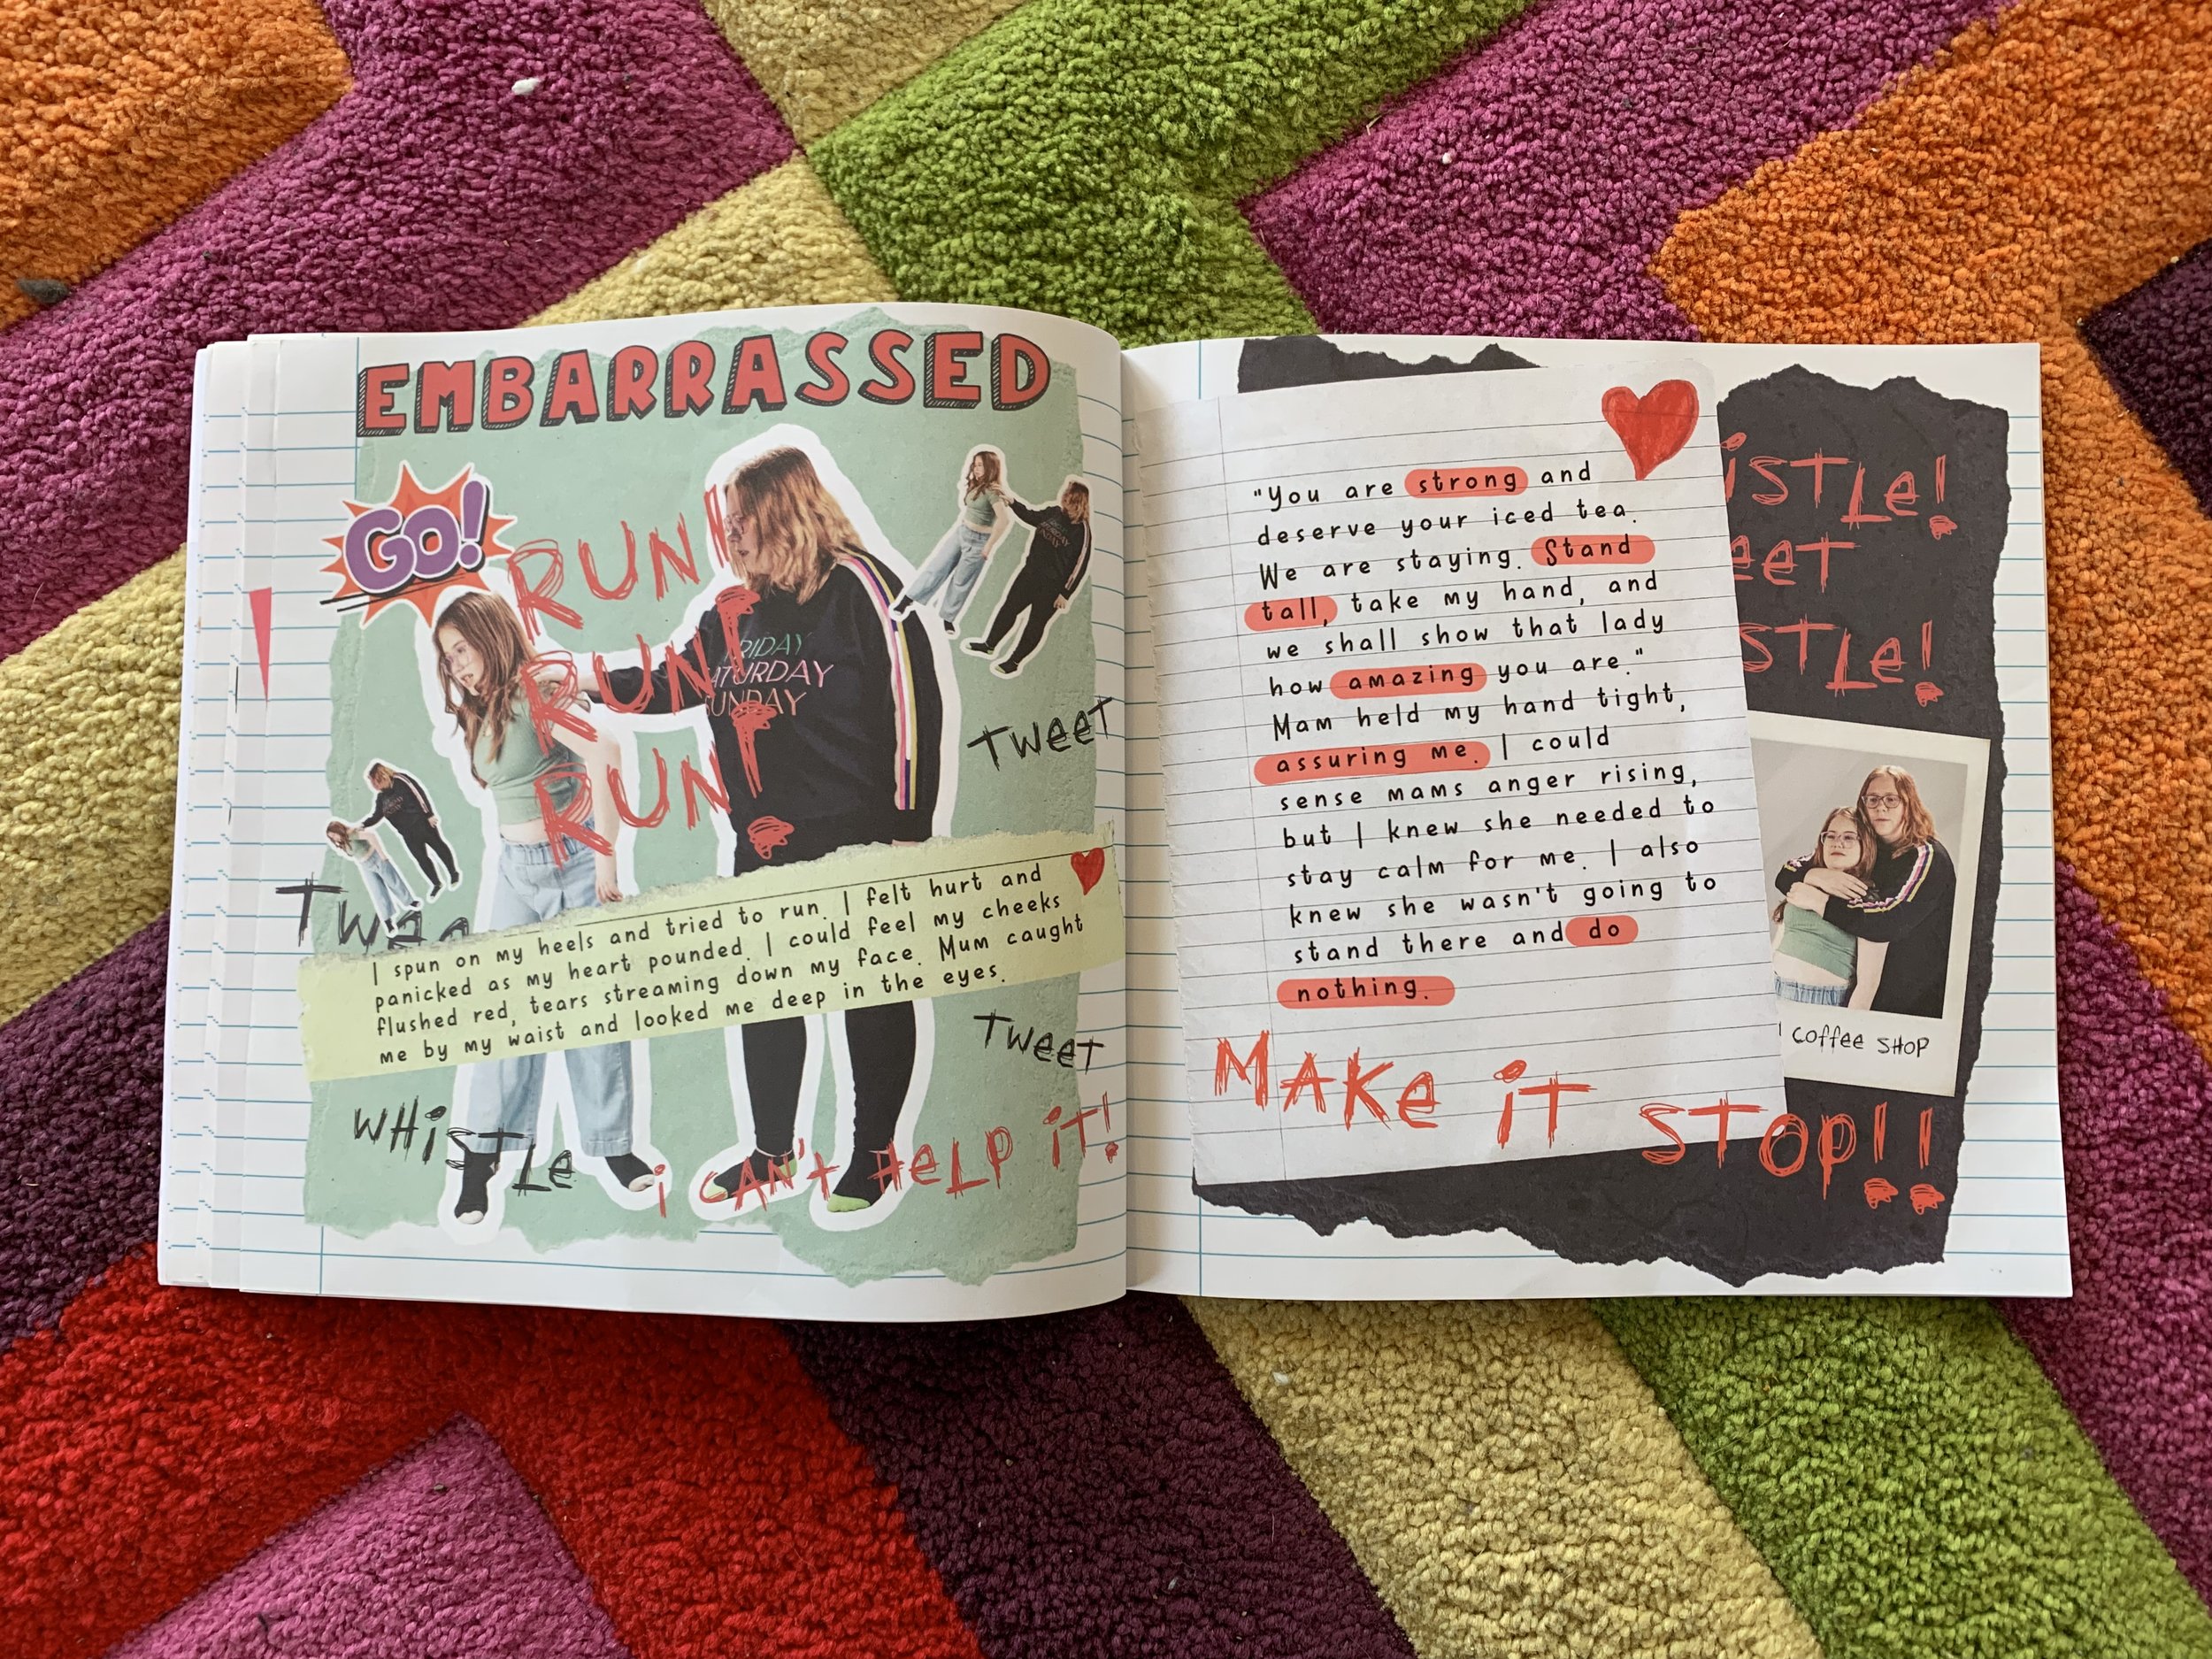 EMBARRASSED
GO!
RUN!
RUN!
RUN!
FRIDAY
SATURDAY
SUNDAY
TWEET
I spun on my heels and tried to run. I felt hurt and
panicked as my heart pounded. I could feel my cheeks
flushed red, tears streaming down my face. Mum caught
me by my waist and looked me deep in the eyes.
TWEET
WHiSTLe
i CAN'T HeLP iT!
"You are strong and
deserve your iced tea.
We are staying. Stand
tall, take my hand, and
we shall show that lady
how amazing you are."
Mam held my hand tight,
assuring me. I could
sense mams anger rising,
but I knew she needed to
stay calm for me. I also
knew she wasn't going to
stand there and do
nothing.
MAKe iT STOP!!
iSTLe!
eeT
STLe!
COFFee SHOP